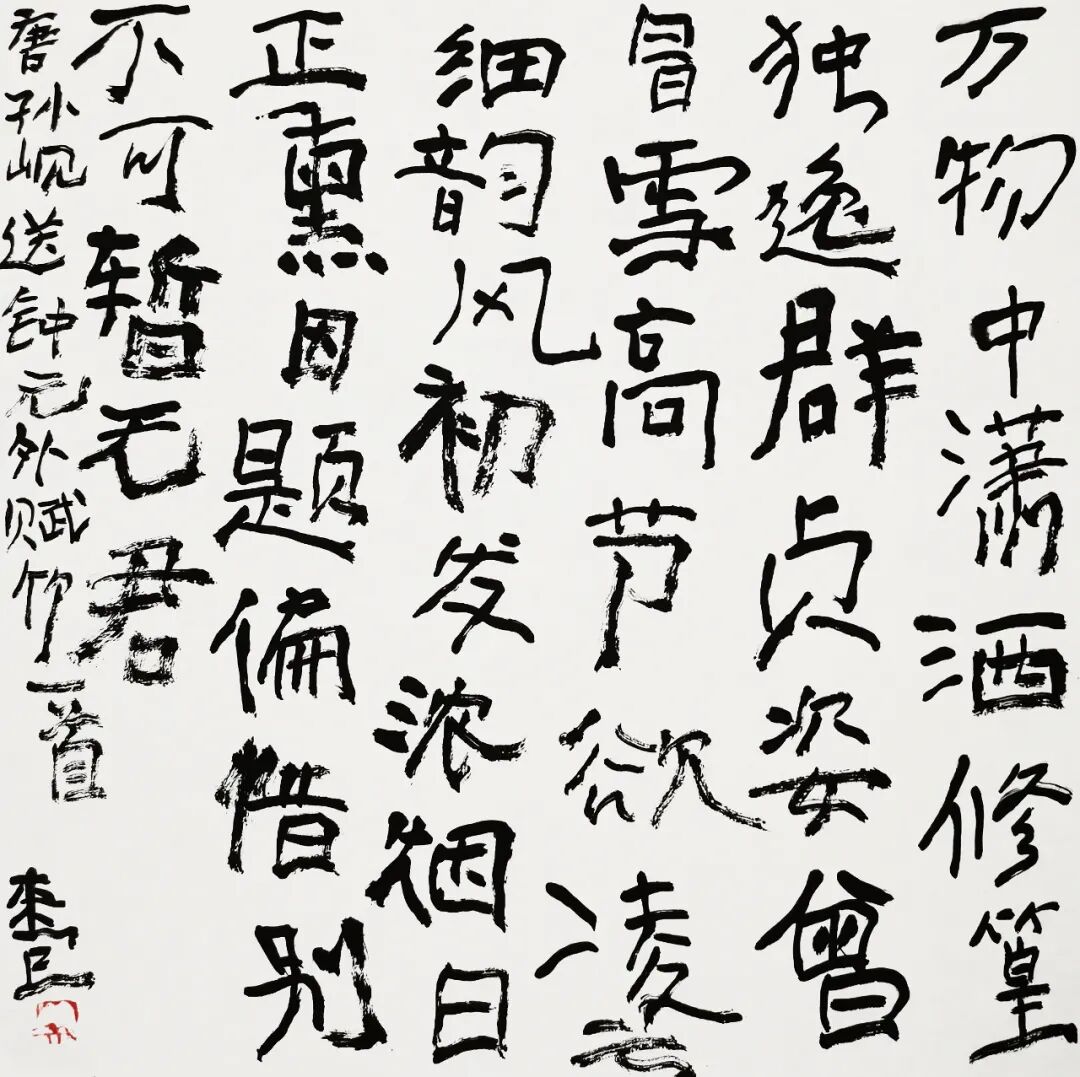 万物中潇洒修篁
独逸群贞姿曾
冒雪高节欲凌云
细韵风初发浓烟日
正熏因题偏惜别
不可暂无君
唐孙岘送钟元外赋竹一首